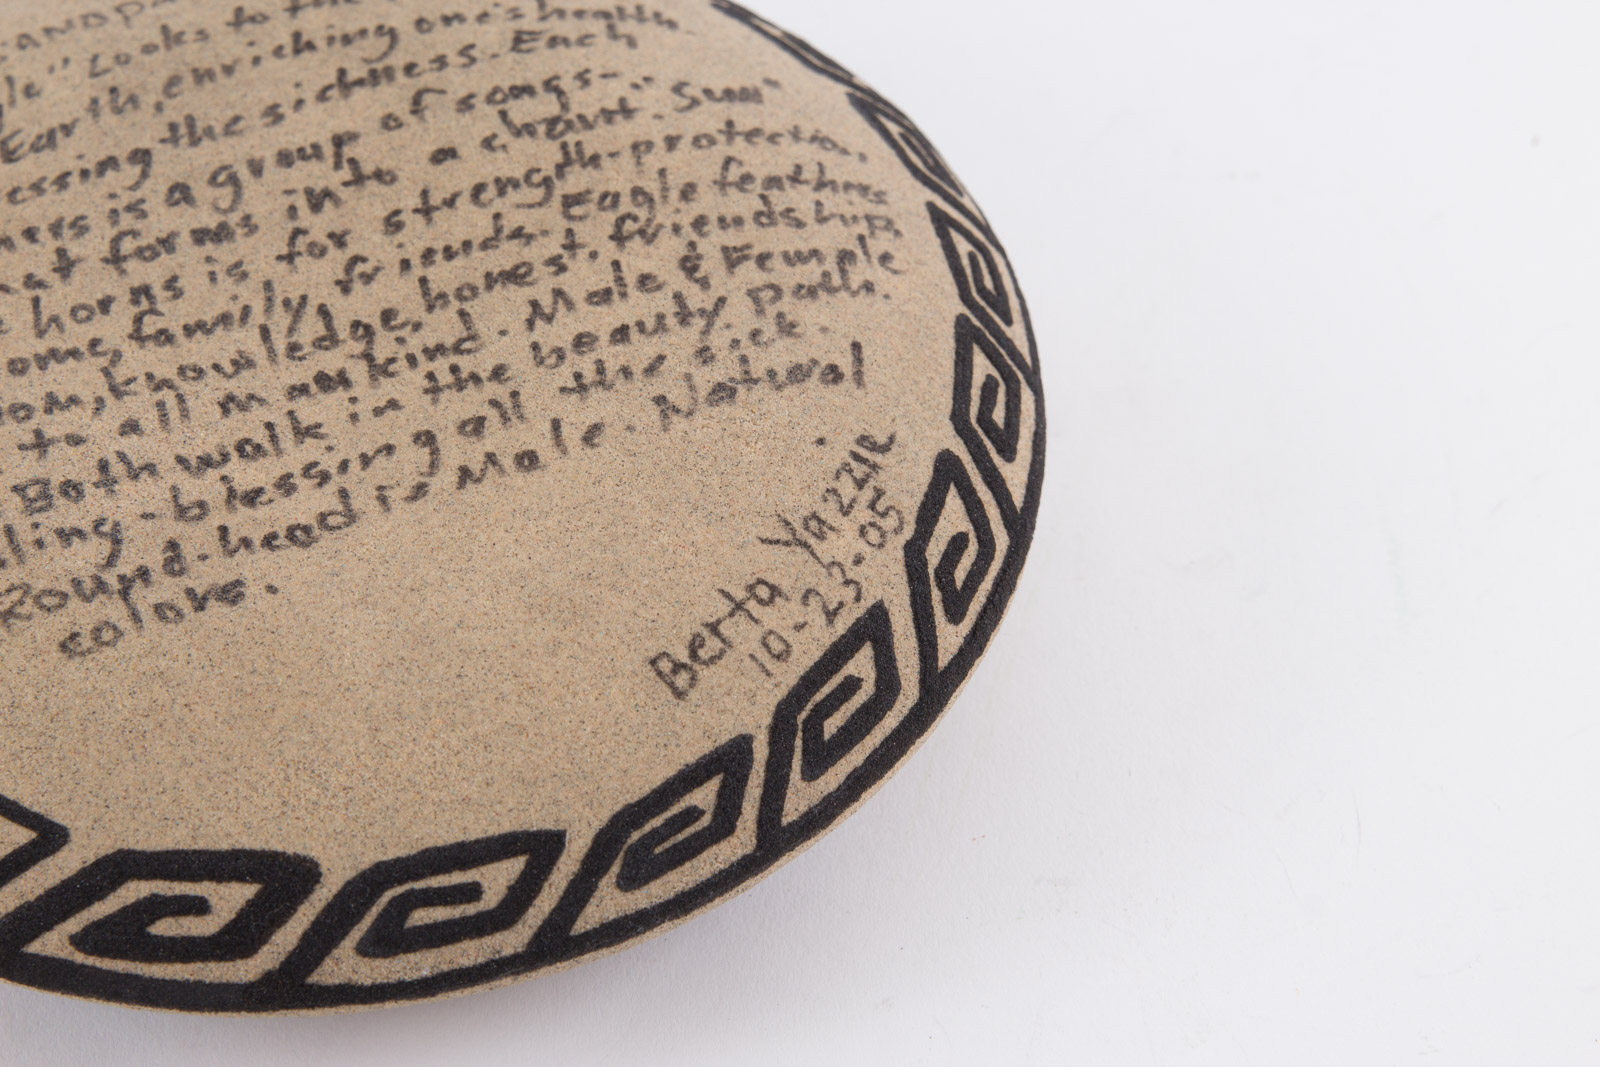 le" Looks to the
Earth, enriching one's health.
essing the sickness. Each
hers is a group of songs-
hat forms into a chant. "Sun"
horns is for strength-protection,
ome, family, friends. Eagle feathers
om, knowledge, honest, friendship,
to all mankind. Male & Female
Both walk in the beauty path.
ling-blessing all the sick.
Round-head is Male. Natural
colors.
Berta Yazzie
10-23-05